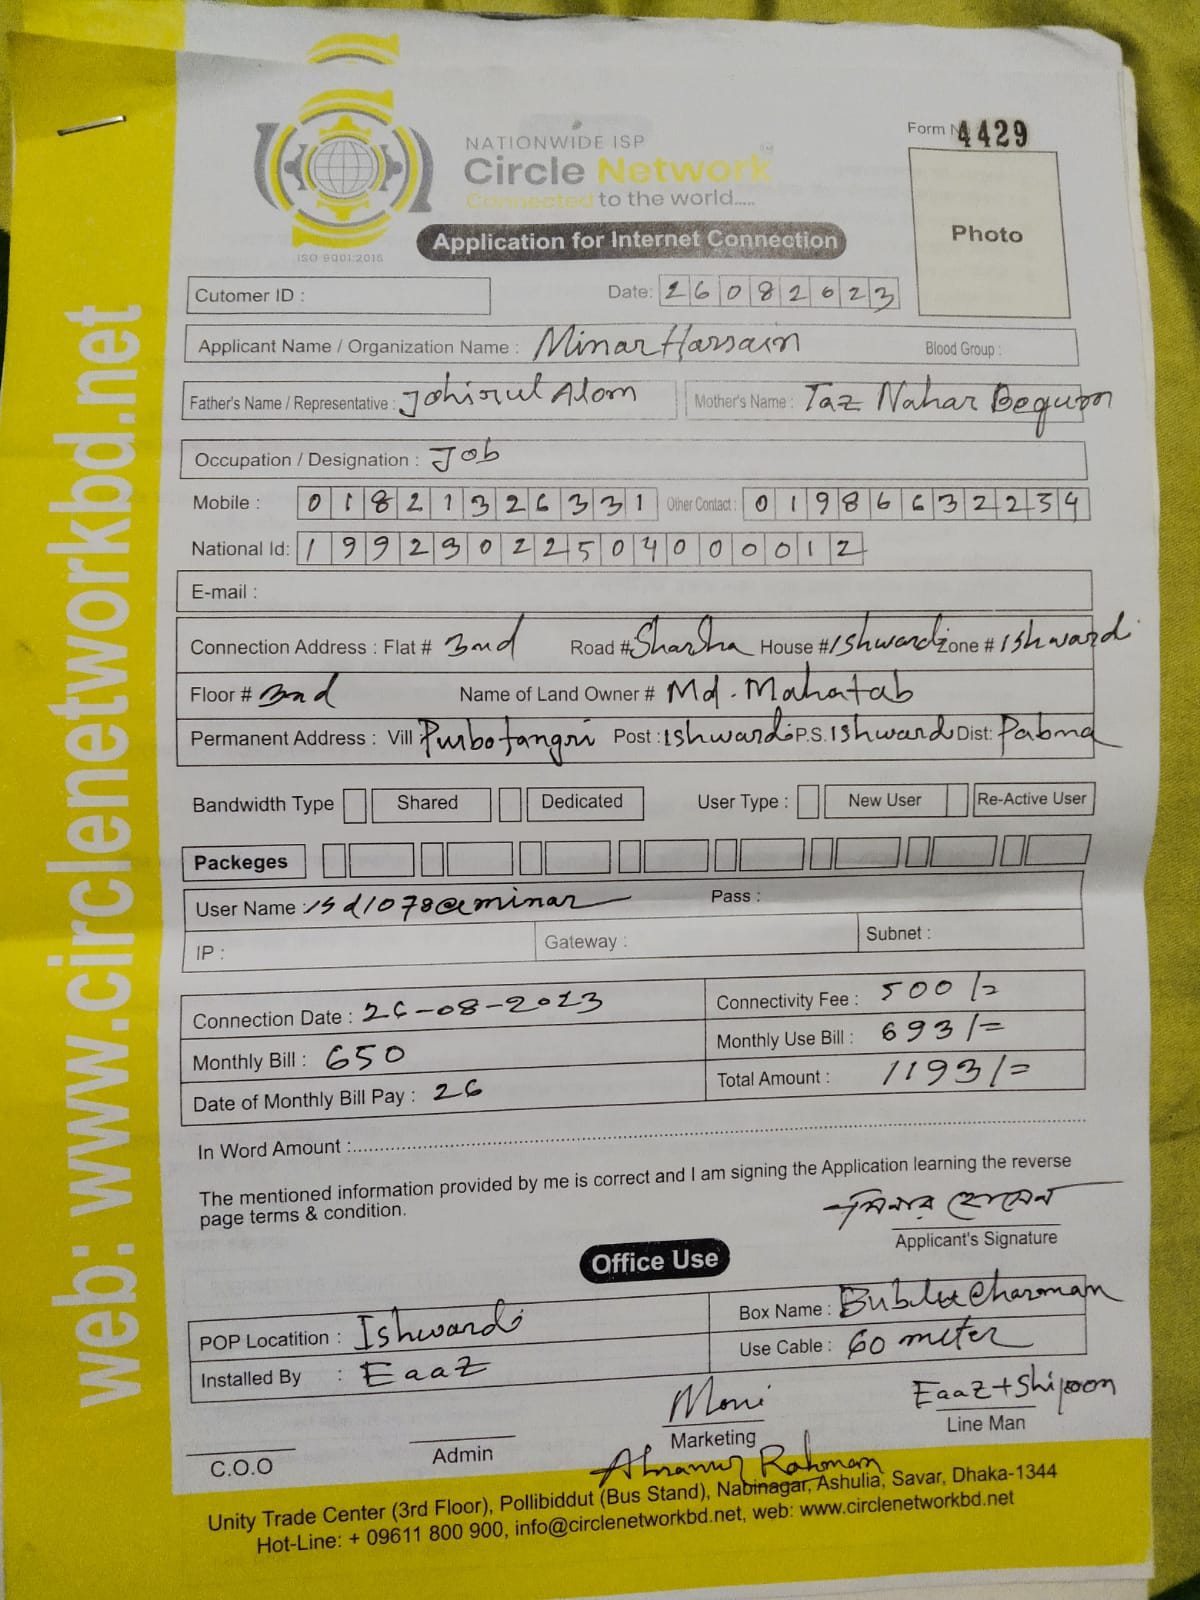 Form N 4429
NATIONWIDE ISP
Circle Network
Connected to the world.....
ISO 9001:2015
Application for Internet Connection
Photo
Cutomer ID :
Date: 26082023
Applicant Name / Organization Name : Minar Hossain Blood Group :
Father's Name / Representative : Johirul Alom Mother's Name : Taz Nahar Begum
Occupation / Designation : Job
Mobile : 01821326331 Other Contact : 01986632234
National Id: 19923022504000012
E-mail :
Connection Address : Flat # 2nd Road # Sharsha House # Ishwardi Zone # Ishwardi
Floor # 2nd Name of Land Owner # Md. Mahatab
Permanent Address : Vill Purbotangri Post : Ishwardi P.S. Ishwardi Dist: Pabna
Bandwidth Type Shared Dedicated User Type : New User Re-Active User
Packeges
User Name : isd1078@minar Pass :
IP : Gateway : Subnet :
Connection Date : 26-08-2023 Connectivity Fee : 500/=
Monthly Bill : 650 Monthly Use Bill : 693/=
Date of Monthly Bill Pay : 26 Total Amount : 1193/=
In Word Amount :
The mentioned information provided by me is correct and I am signing the Application learning the reverse
page terms & condition.
মিনার হোসেন
Applicant's Signature
Office Use
POP Locatition : Ishwardi Box Name : Bublu
Installed By : Eaaz Use Cable : 60 meter
Moni Eaaz+Shipon
C.O.O Admin Marketing Line Man
Rahman
Unity Trade Center (3rd Floor), Pollibiddut (Bus Stand), Nabinagar, Ashulia, Savar, Dhaka-1344
Hot-Line: + 09611 800 900, info@circlenetworkbd.net, web: www.circlenetworkbd.net
web: www.circlenetworkbd.net